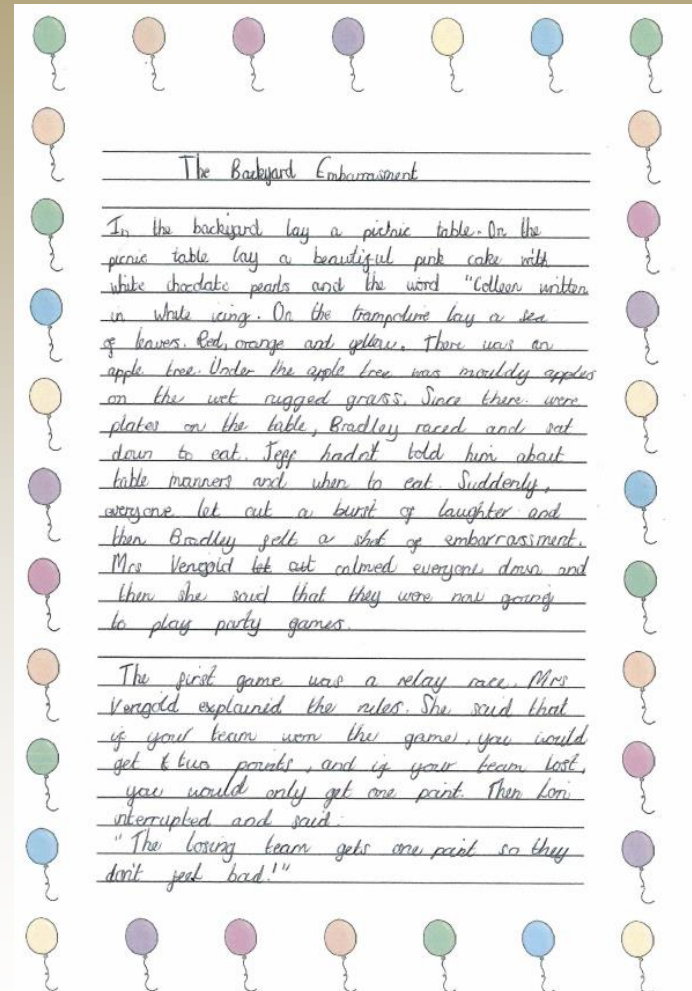 The Backyard Embarrasment
In the backyard lay a picnic table. On the
picnic table lay a beautiful pink cake with
white chocolate pearls and the word "Colleen written
in white icing. On the trampoline lay a sea
of leavers. Red, orange and yellow. There was an
apple tree. Under the apple tree was mouldy apples
on the wet rugged grass. Since there were
plates on the table, Bradley raced and sat
down to eat. Jeff hadn't told him about
table manners and when to eat. Suddenly,
everyone let out a burst of laughter and
then Bradley felt a shot of embarrassment.
Mrs Vengold let out calmed everyone down and
then she said that they were now going
to play party games.
The first game was a relay race. Mrs
Vengold explained the rules. She said that
if your team won the game, you would
get t two points, and if your team lost,
you would only get one point. Then Lori
interrupted and said:
"The losing team gets one point so they
don't feel bad!"